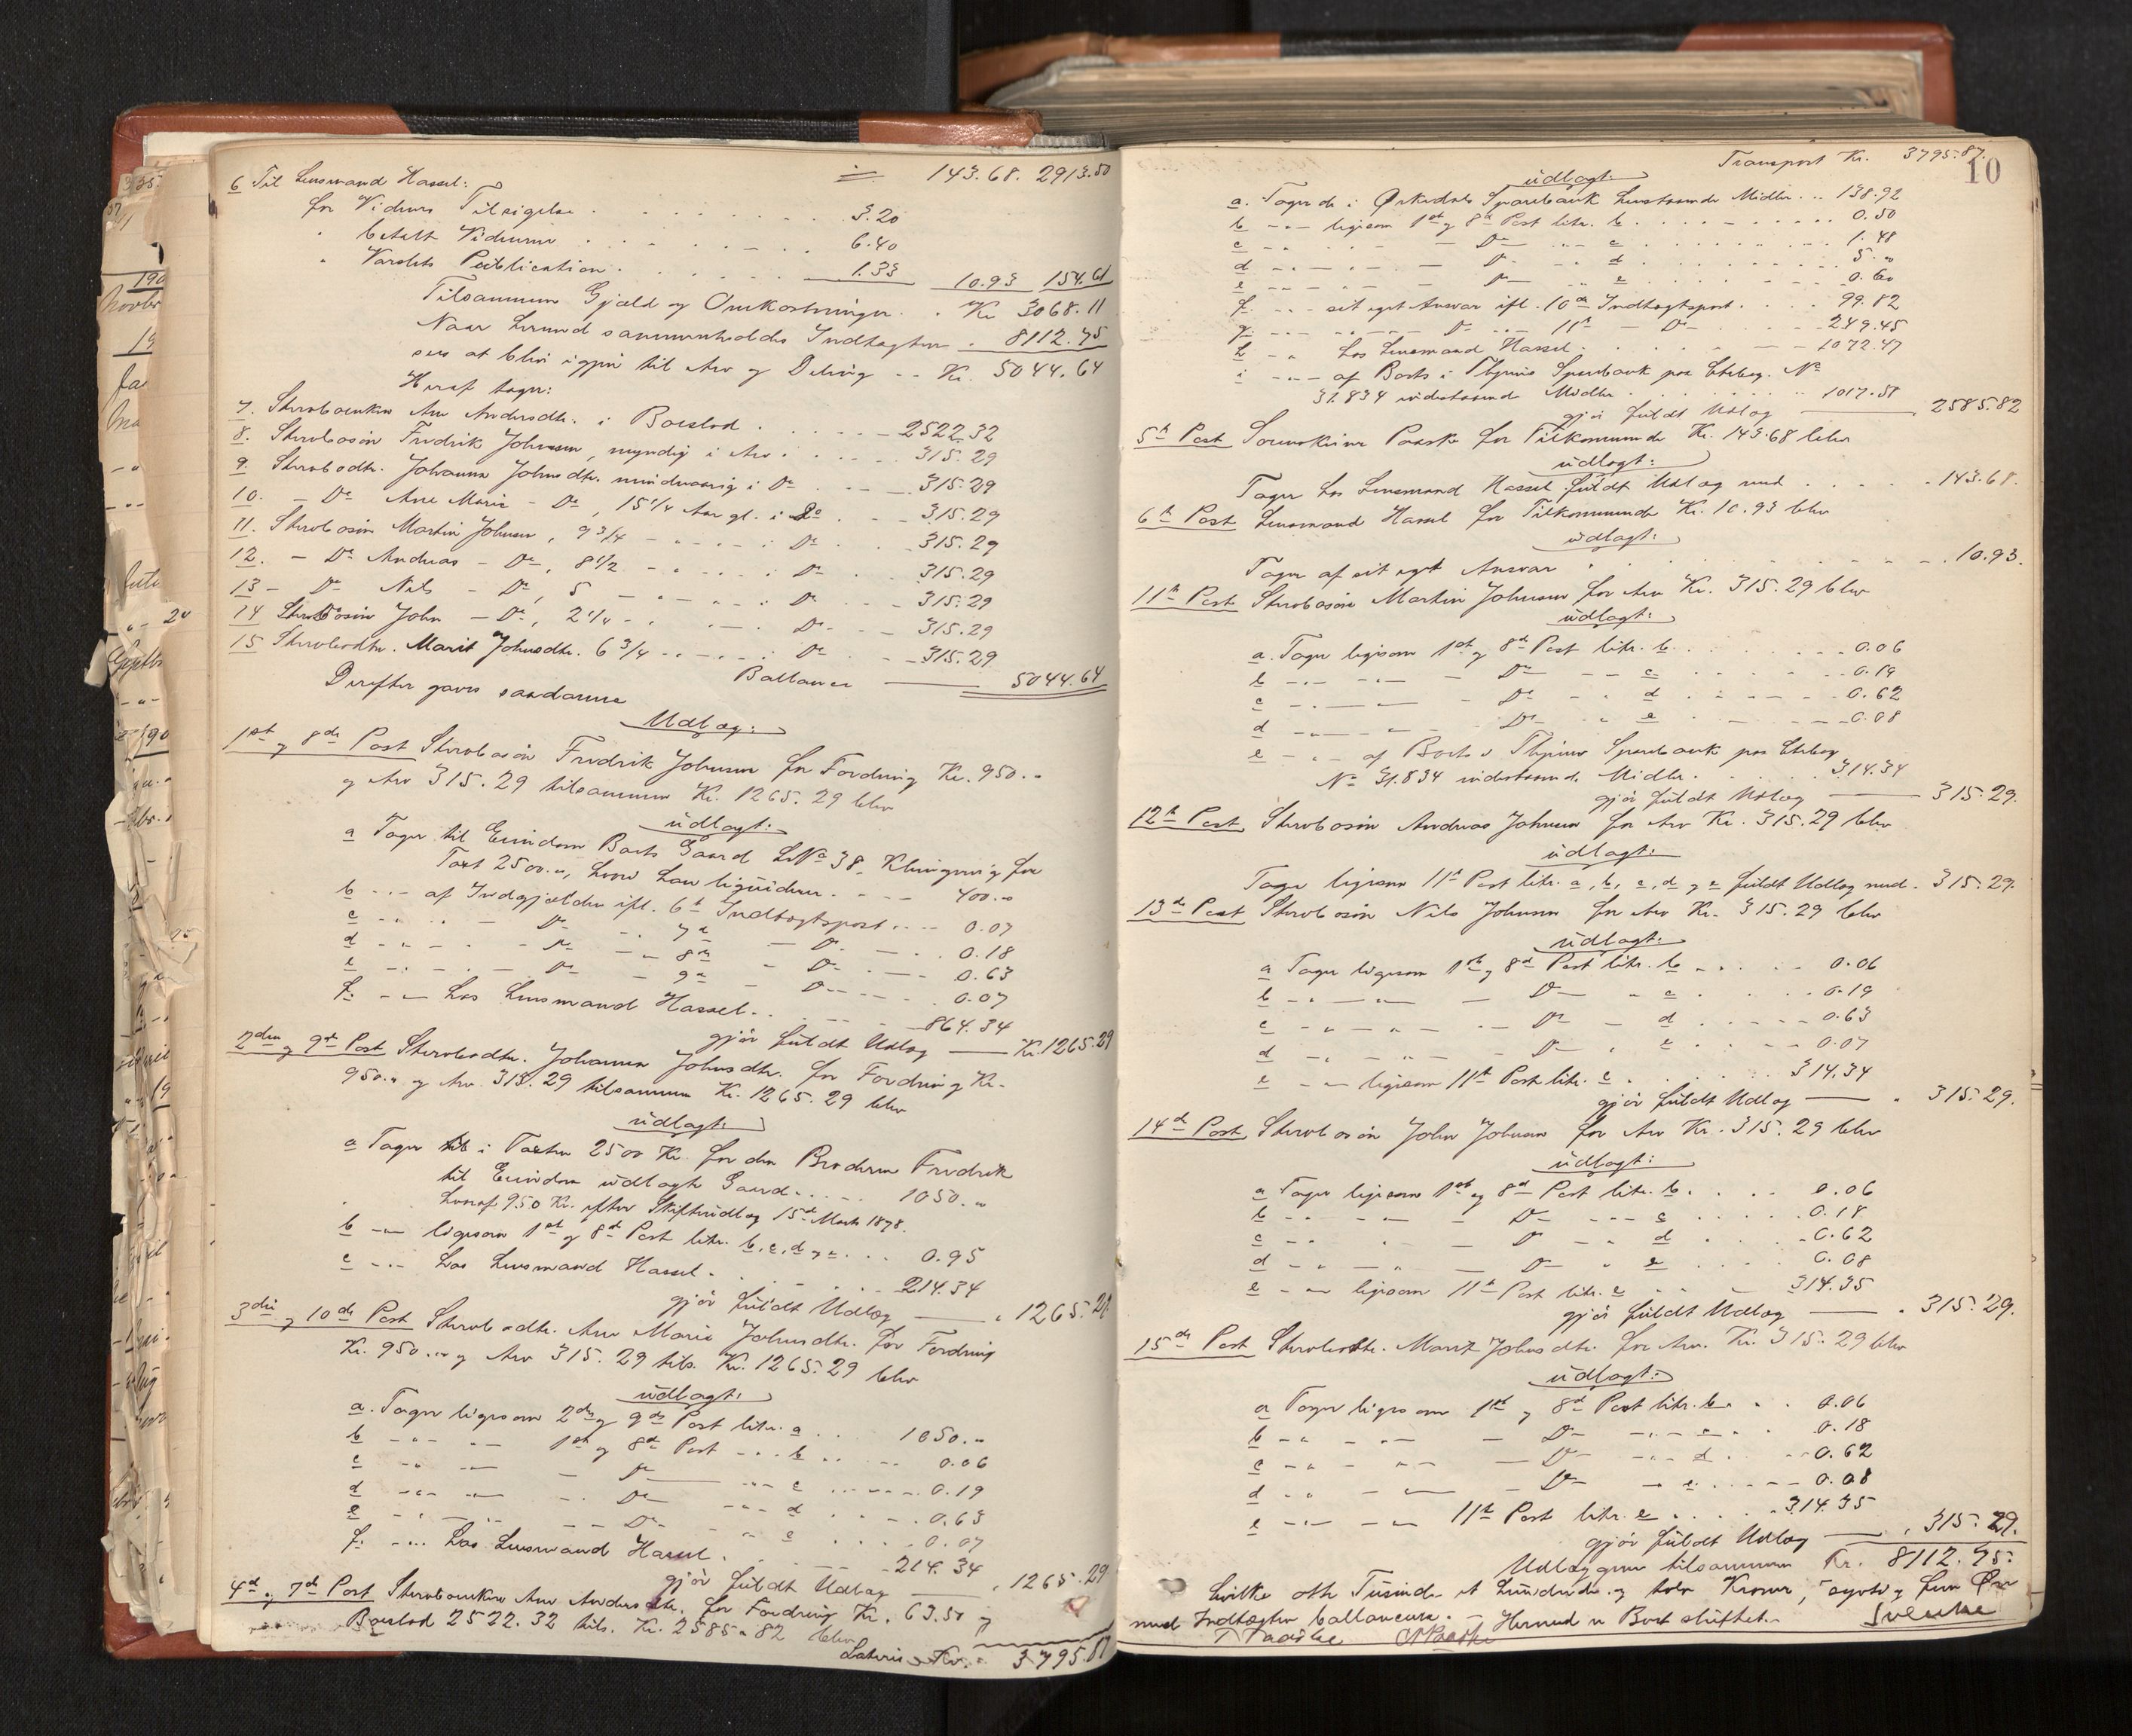 6 Til Lensmand Hassel: = 143.68. 2913.50
for Vidners Tilsigelse 3.20
" betalt Vidnerne 6.40
" Varslets Publication 1.33 10.93 154.61
Tilsammen Gjæld og Omkostninger Kr. 3068.11
Naar hermed sammenholdes Indtægten 8112.75
sees at blive igjen til Arv og Deling Kr. 5044.64
Heraf tager:
7. Stervboenken Ane Andersdtr. i Boeslod 2522.32
8. Stervbosøn Fredrik Johnsen, myndig i Arv 315.29
9. Stervbodtr. Johanna Johnsdtr. mindreaarig i Do 315.29
10. - Do Ane Marie - Do, 15 1/4 Aar gl. i Do 315.29
11. Stervbosøn Martin Johnsen, 9 3/4 - " - i Do 315.29
12. - Do Andreas - Do, 8 1/2 - " - i Do 315.29
13 - Do Nils - Do, 5 - " - i Do 315.29
14 Stervbosøn John - Do, 2 1/4 - " - Do 315.29
15 Stervbodtr. Marit Johnsdtr. 6 3/4 - " - i Do 315.29
Ballance 5044.64
Derefter gaves saadanne
Udlæg:
1st og 8de Post Stervbosøn Fredrik Johnsen for Fordring Kr. 950.-
og Arv 315.29 tilsammen Kr. 1265.29 blev
udlagt:
a Tager til Eiendom Boets Gaard LNo 38, Klingen for
Taxt 2500.-, hvori han liqviderer 400.-
b - - af Indgjælden ifl. 6t Indtægtspost 0.07
c - - - Do - 7d - Do 0.18
d - - - Do - 8de - Do 0.63
e - - - Do - 9d - Do 0.07
f. - - hos Lensmand Hassel 864.34
gjør fuldt Udlæg Kr. 1265.29
2den og 9de Post Stervbodtr. Johanna Johnsdtr. for Fordring Kr.
950.- og Arv 315.29 tilsammen Kr. 1265.29 blev
udlagt:
a Tager til i Taxten 2500 Kr. for den Broderen Fredrik
til Eiendom udlagte Gaard 1050.-
hvoraf 950 Kr. efter Skifteudlæg 15de Marts 1878.
b - - ligesom 1st og 8de Post litr. b, c, d og e 0.95
c - - hos Lensmand Hassel 214.34
gjør fuldt Udlæg " 1265.29
3die og 10de Post Stervbodtr. Ane Marie Johnsdtr. for Fordring
Kr. 950.- og Arv 315.29 tils. Kr. 1265.29 blev
udlagt:
a. Tager ligesom 2den og 9de Post litr. a 1050.-
b - - - 1st og 8de Post - - b 0.06
c - - - Do - - c 0.19
d - - - Do - - d 0.63
e - - - Do - - e 0.07
f. - - hos Lensmand Hassel 214.34
gjør fuldt Udlæg " 1265.29
4de og 7de Post Stervboenken Ane Andersdtr. for Fordring Kr. 63.50 og
Boeslod 2522.32 tils. Kr. 2585.82 blev
Lateris Kr. 3795.87
Transport Kr. 3795.87.
10
udlagt:
a. Tager de i Ørkedals Sparebank henstaaende Midler 138.92
b - - ligesom 1st og 8d Post litr. b 0.50
c - - - Do - c 1.48
d - - - Do - d 5."
e - - - Do - e 0.60
f. - - sit eget Ansvar ifl. 10de Indtægtspost 99.82
g. - - - Do - 11te - Do 249.45
h - - hos Lensmand Hassel 1072.47
i - - af Boets i Thjems Sparebank paa Ctrbog. No
31.834 indestaaende Midler 1017.58
gjør fuldt Udlæg 2585.82
5te Post Sorenskriver Paaske for Tilkommende Kr. 143.68 blev
udlagt:
Tager hos Lensmand Hassel fuldt Udlæg med 143.68.
6te Post Lensmand Hassel for Tilkommende Kr. 10.93 blev
udlagt:
Tager af sit eget Ansvar 10.93.
11te Post Stervbosøn Martin Johnsen for Arv Kr. 315.29 blev
udlagt:
a. Tager ligesom 1st og 8d Post litr. b 0.06
b - - - Do - c 0.19
c - - - Do - d 0.62
d - - - Do - e 0.08
e - - af Boets i Thjems Sparebank paa Ctrbog
No 31.834 indestaaende Midler 314.34
gjør fuldt Udlæg 315.29.
12te Post Stervbosøn Andreas Johnsen for Arv Kr. 315.29 blev
udlagt:
Tager ligesom 11te Post litr. a, b, c, d og e fuldt Udlæg med 315.29.
13de Post Stervbosøn Nils Johnsen for Arv Kr. 315.29 blev
udlagt:
a Tager ligesom 1st og 8d Post litr. b 0.06
b - - - Do - c 0.19
c - - - Do - d 0.63
d - - - Do - e 0.07
e - - ligesom 11te Post litr. e 314.34
gjør fuldt Udlæg " 315.29.
14d Post Stervbosøn John Johnsen for Arv Kr. 315.29 blev
udlagt:
a Tager ligesom 1st og 8d Post litr. b 0.06
b - - - Do - c 0.18
c - - - Do - d 0.62
d - - - Do - e 0.08
e - - ligesom 11te Post litr. e 314.35
gjør fuldt Udlæg " 315.29.
15de Post Stervbodtr. Marit Johnsdtr. for Arv. Kr. 315.29 blev
udlagt:
a Tager ligesom 1st og 8d Post litr. b 0.06
b - - - Do - c 0.18
c - - - Do - d 0.62
d - - - Do - e 0.08
e - - - 11te Post litr. e 314.35
gjør fuldt Udlæg " 315.29.
Udlæggene tilsammen Kr. 8112.75.
hvilke otte Tusinde et hundrede og tolv Kroner, syvti og fem Øre
med Indtægten ballancere. - Hermed er Boet sluttet.
T Paaske